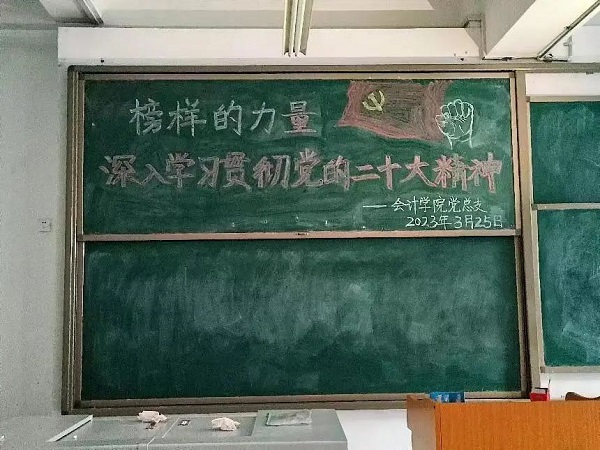 榜样的力量
深入学习贯彻党的二十大精神
——会计学院党总支
2023年3月25日